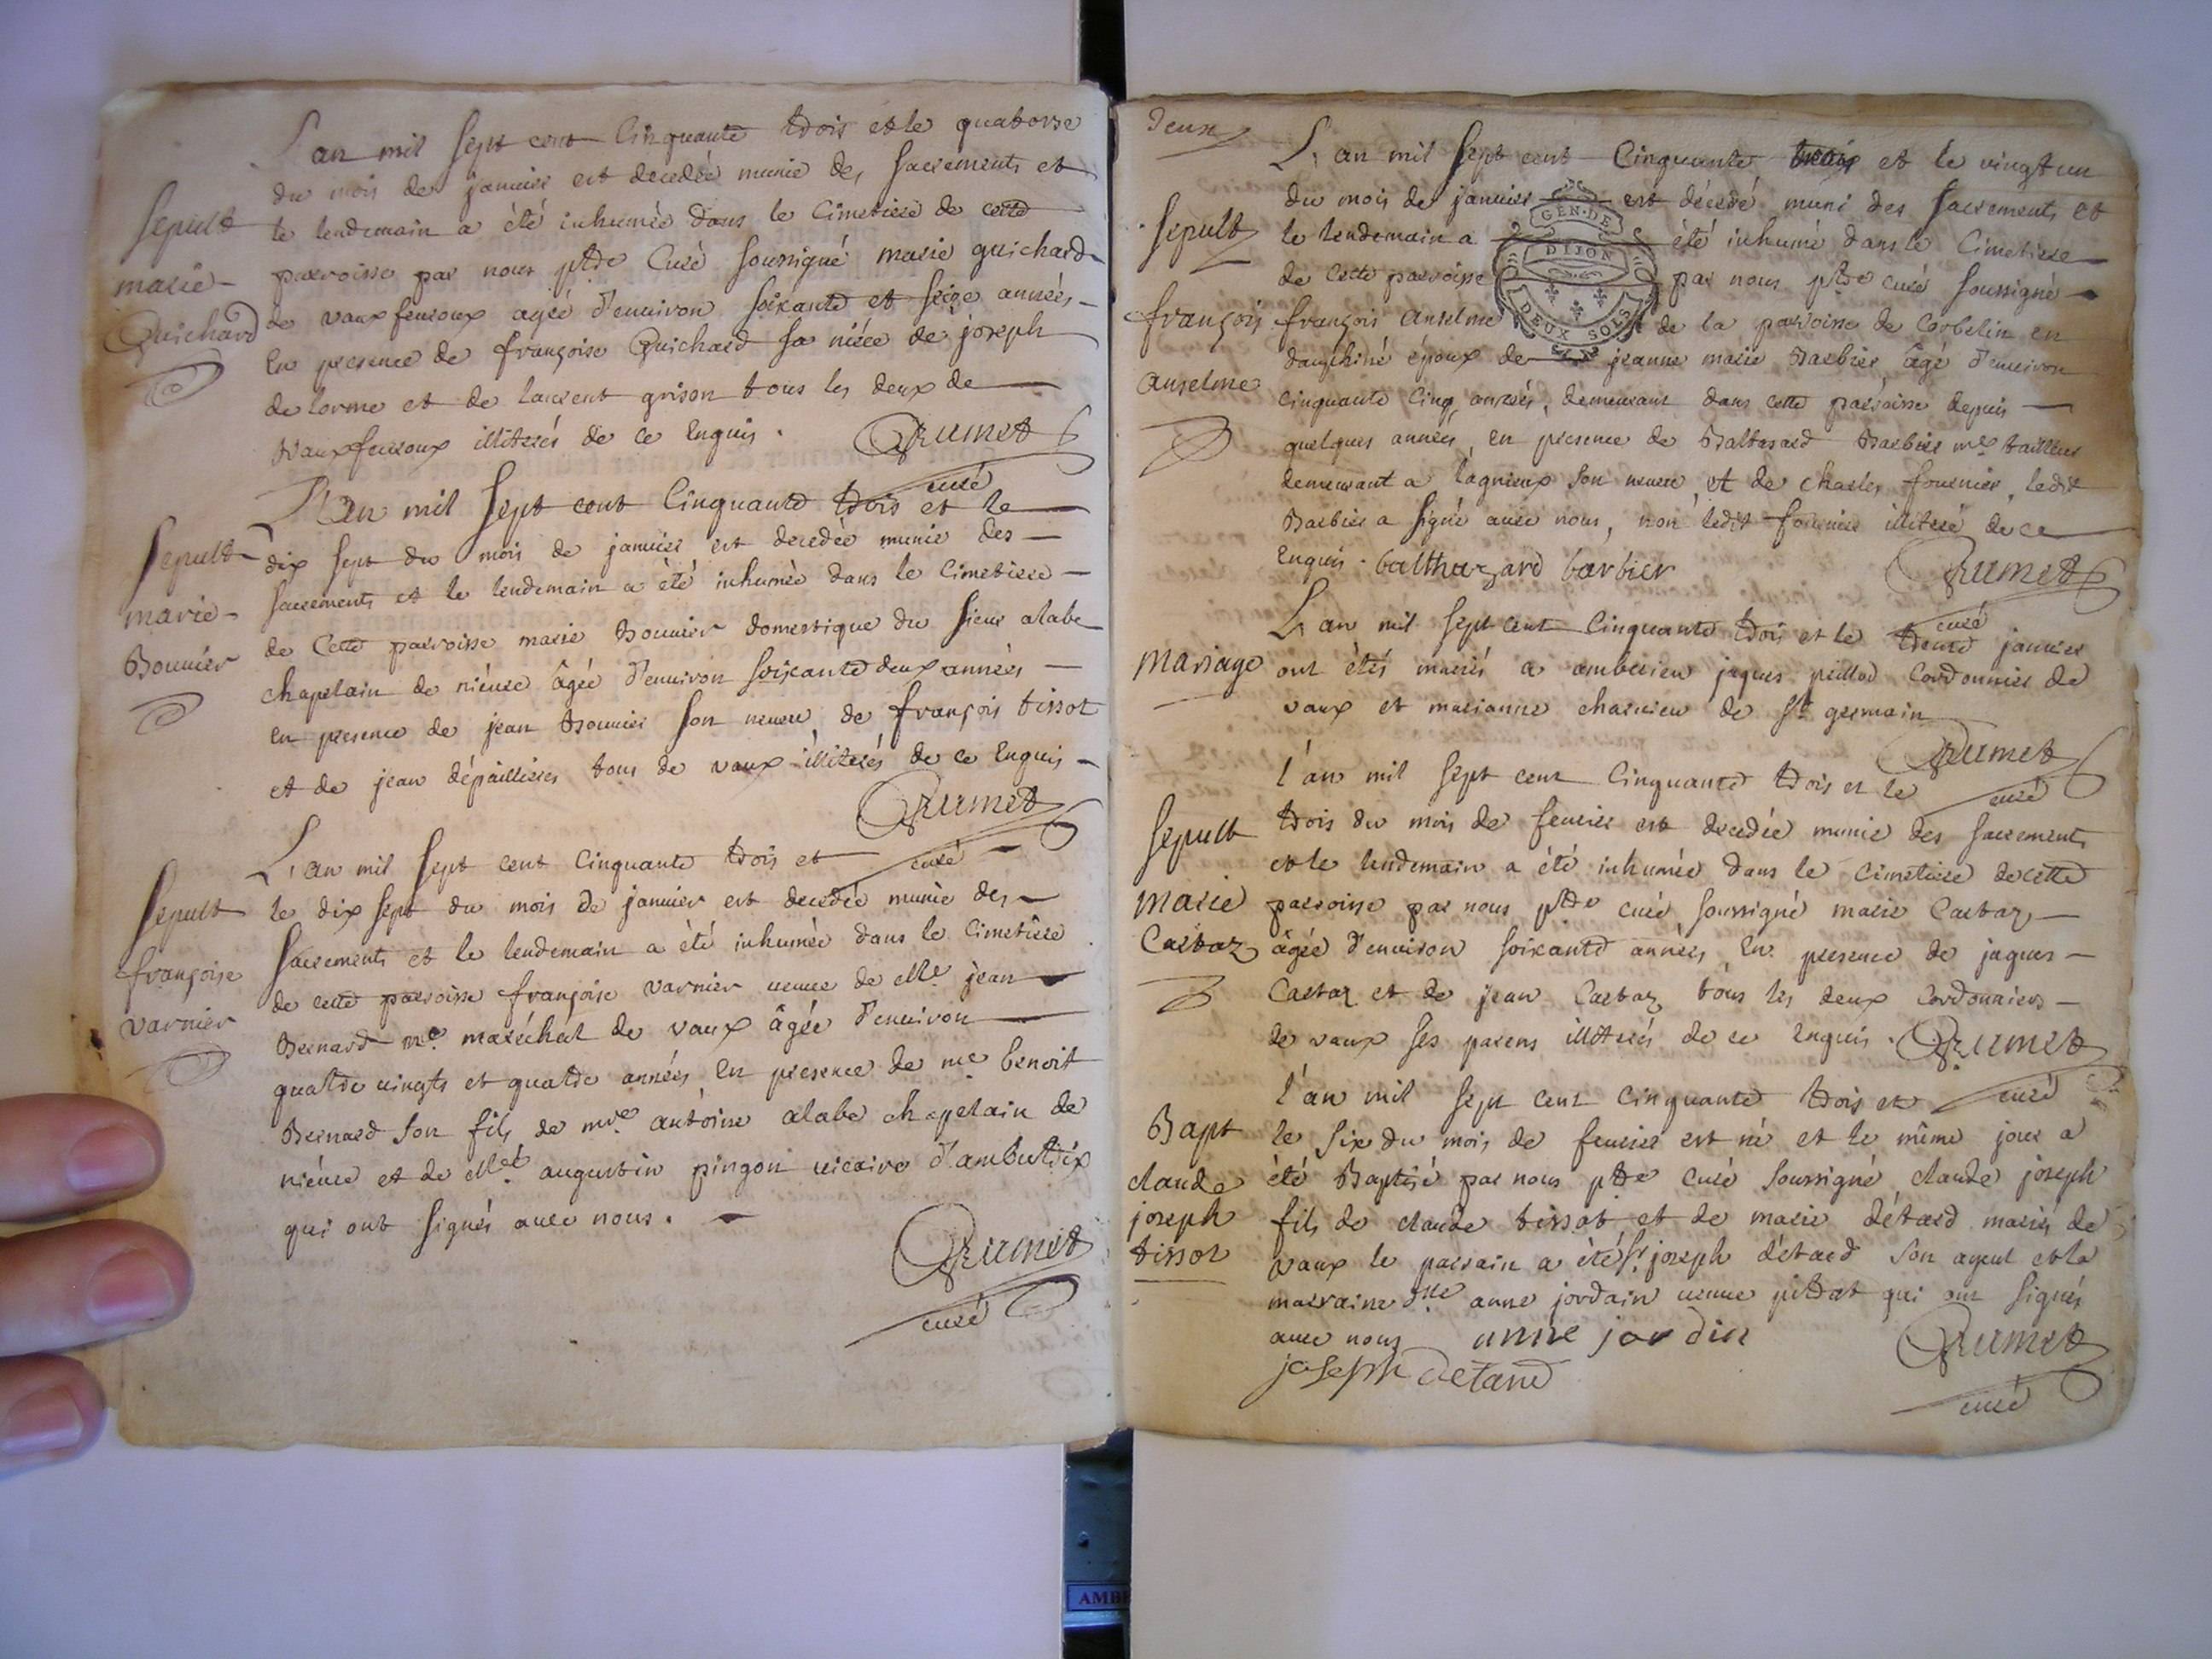 L'an mil sept cent cinquante trois et le quatorse
du mois de janvier est decedée munie des sacrements et
Sepult
le lendemain a été inhumée dans le cimetiere de cette
marie
parroisse par nous ptre curé soussigné marie guichard
Guichard
de vauxfevroux agée d'environ soixante et seize années
en presence de françoise Guichard sa niéce de joseph
delorme et de laurent grison tous les deux de
Vauxfevroux illiterés de ce enquis.
Grumet
curé
L'an mil sept cent cinquante trois et le
Sepult
dix sept du mois de janvier est decedée munie des
sacrements et le lendemain a été inhumée dans le cimetiere
marie
de cette parroisse marie Bouvier domestique du sieur alabe
Bouvier
chapelain de niévre âgée d'environ soixante deux années
en presence de jean Bouvier son neveu de françois tissot
et de jean dépaillieres tous de vaux illiterés de ce enquis
Grumet
curé
L'an mil sept cent cinquante trois et
Sepult
le dix sept du mois de janvier est decedée munie des
sacrements et le lendemain a été inhumée dans le cimetiere
françoise
de cette parroisse françoise varnier veuve de Me jean
varnier
Bernard me maréchal de vaux âgée d'environ
quatre vingts et quatre années en presence de me benoit
Bernard son fils de mre antoine alabe chapelain de
niévre et de Me augustin pingon vicaire d'ambutrix
qui ont signés avec nous.
Grumet
curé
Deux
L'an mil sept cent cinquante trois et le vingt un
du mois de janvier est décedé muni des sacrements et
GEN. DE
DIJON
DEUX SOLS
Sepult
le lendemain a été inhumé dans le cimetiere
de cette parroisse par nous ptre curé soussigné
françois
françois anselme de la parroisse de Corbelin en
dauphiné époux de jeanne marie Barbier âgé d'environ
anselme
cinquante cinq années, demeurant dans cette parroisse depuis
quelques années, en presence de Baltasard Barbier me tailleur
demeurant a lagnieux son neveu, et de charles fournier, ledit
Barbier a signé avec nous, non ledit fournier illiteré de ce
enquis. balthazard barbier
Grumet
curé
L'an mil sept cent cinquante trois et le trente janvier
mariage
ont étés mariés a amberieu jaques peillod cordonnier de
vaux et marianne charvieu de st germain
Grumet
curé
l'an mil sept cent cinquante trois et le
Sepult
trois du mois de fevrier est decedée munie des sacrements
et le lendemain a été inhumée dans le cimetiere de cette
marie
parroisse par nous ptre curé soussigné marie Cartaz
Cartaz
âgée d'environ soixante années, en presence de jaques
Cartaz et de jean Cartaz tous les deux cordonniers
de vaux ses parens illiterés de ce enquis.
Grumet
curé
l'an mil sept cent cinquante trois et
Bapt
le six du mois de fevrier est né et le même jour a
claude
été Baptisé par nous ptre curé soussigné claude joseph
joseph
fils de claude tissot et de marie détard mariés de
tissot
vaux le parrain a été sr joseph détard son ayeul et la
marraine dlle anne jordain veuve pitrat qui ont signés
avec nous
anne jordin
joseph detard
Grumet
curé
AMB